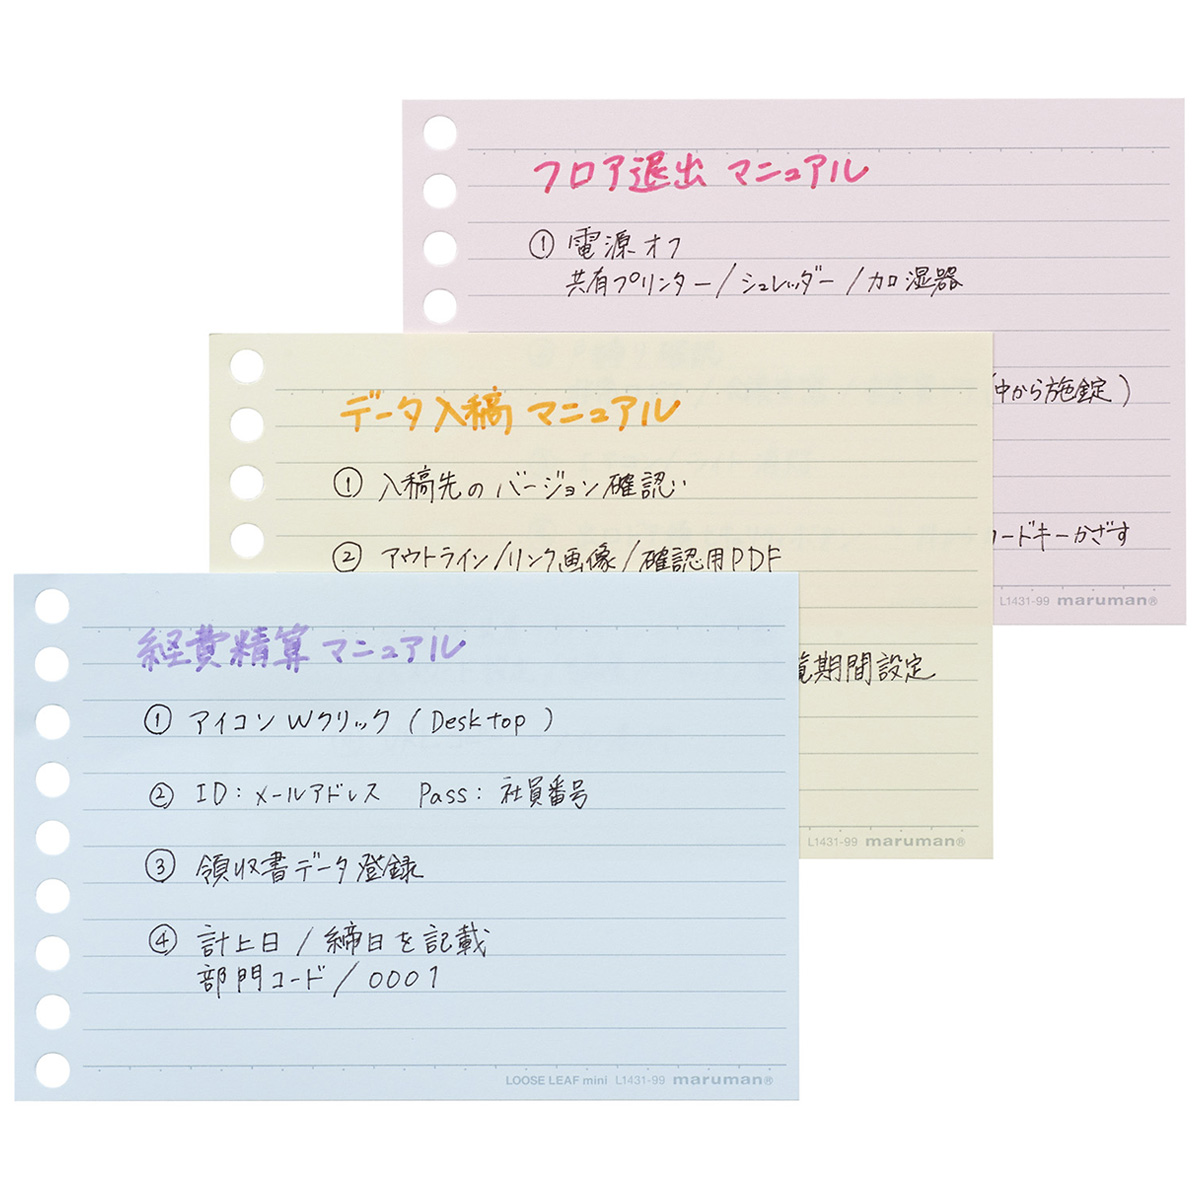 フロア退出 マニュアル
① 電源オフ
共有プリンター/シュレッダー/加湿器
(中から施錠)
ードキーかざす
L1431-99 maruman®
データ入稿 マニュアル
① 入稿先のバージョン確認
② アウトライン/リンク画像/確認用PDF
期間設定
L1431-99 maruman®
経費精算マニュアル
① アイコンWクリック (Desktop)
② ID:メールアドレス Pass:社員番号
③ 領収書データ登録
④ 計上日/締日を記載
部門コード/0001
LOOSE LEAF mini L1431-99 maruman®